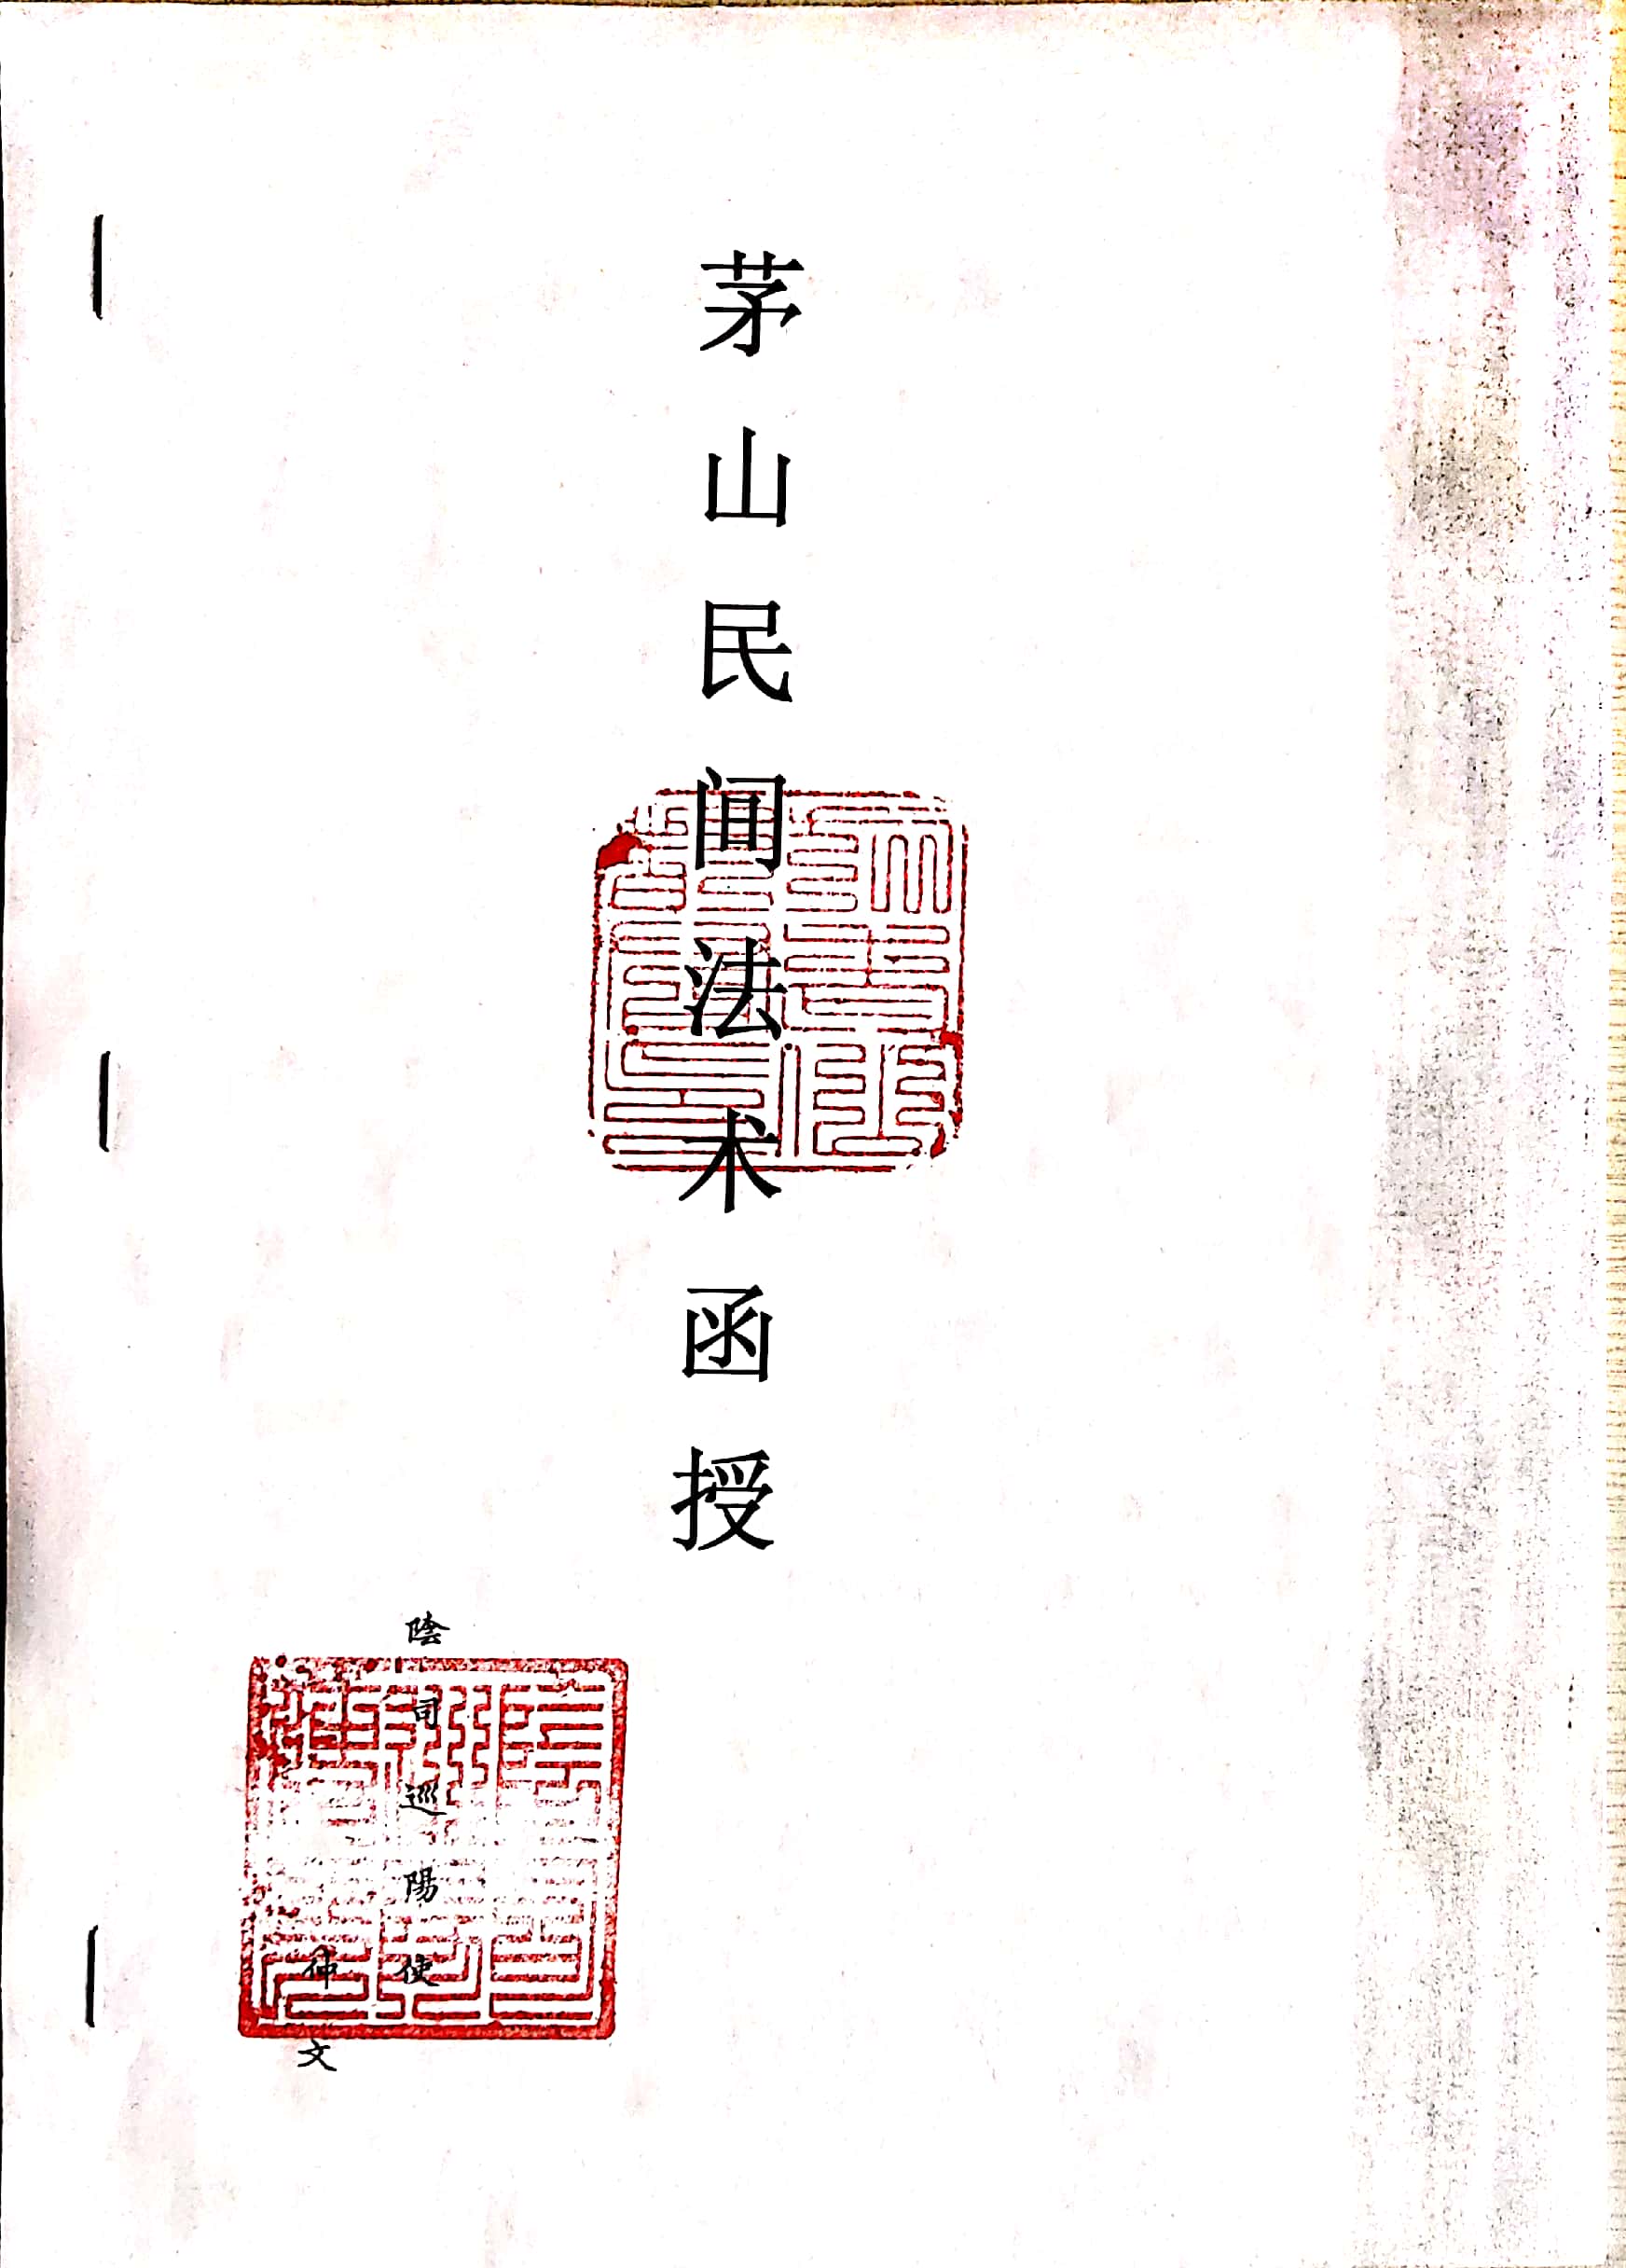 茅山民间法术函授
陰司巡陽使
仲文